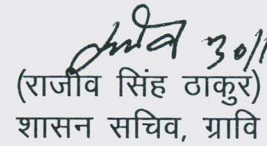 30/1
(राजीव सिंह ठाकुर)
शासन सचिव, ग्रावि